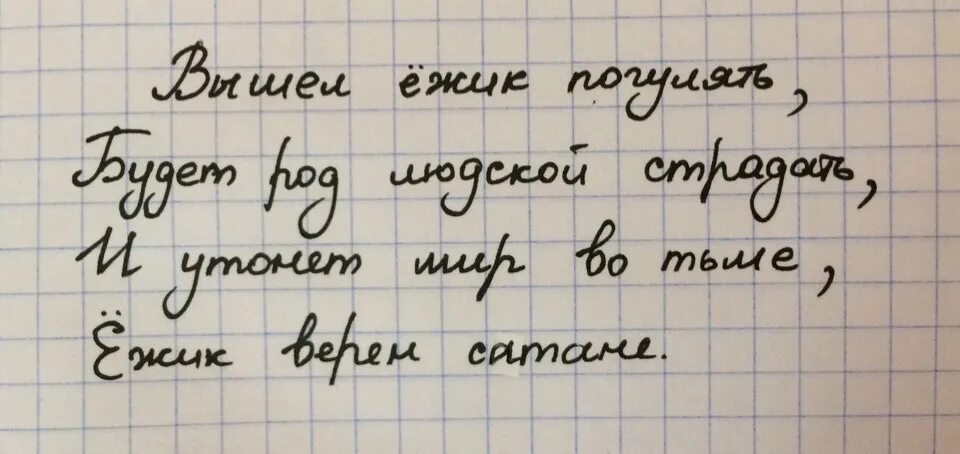 Вышел ёжик погулять,
Будет род людской страдать,
И утонет мир во тьме,
Ёжик верен сатане.